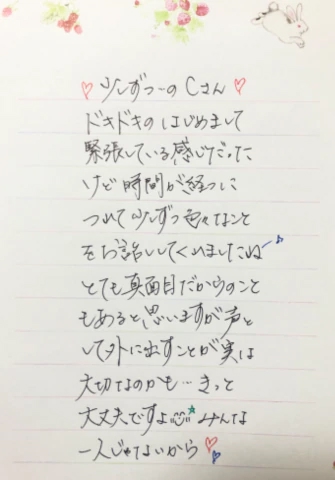 ♡ 少しずつ…のCさん ♡
ドキドキのはじめまして
緊張している感じだった
けど時間が経つに
つれて少しずつ色々なこと
をお話ししてくれましたね〜♪
とても真面目だからのこと
もあると思いますが声と
して外に出すことが実は
大切なのかも…きっと
大丈夫ですよ☺☆みんな
一人じゃないから♡♪